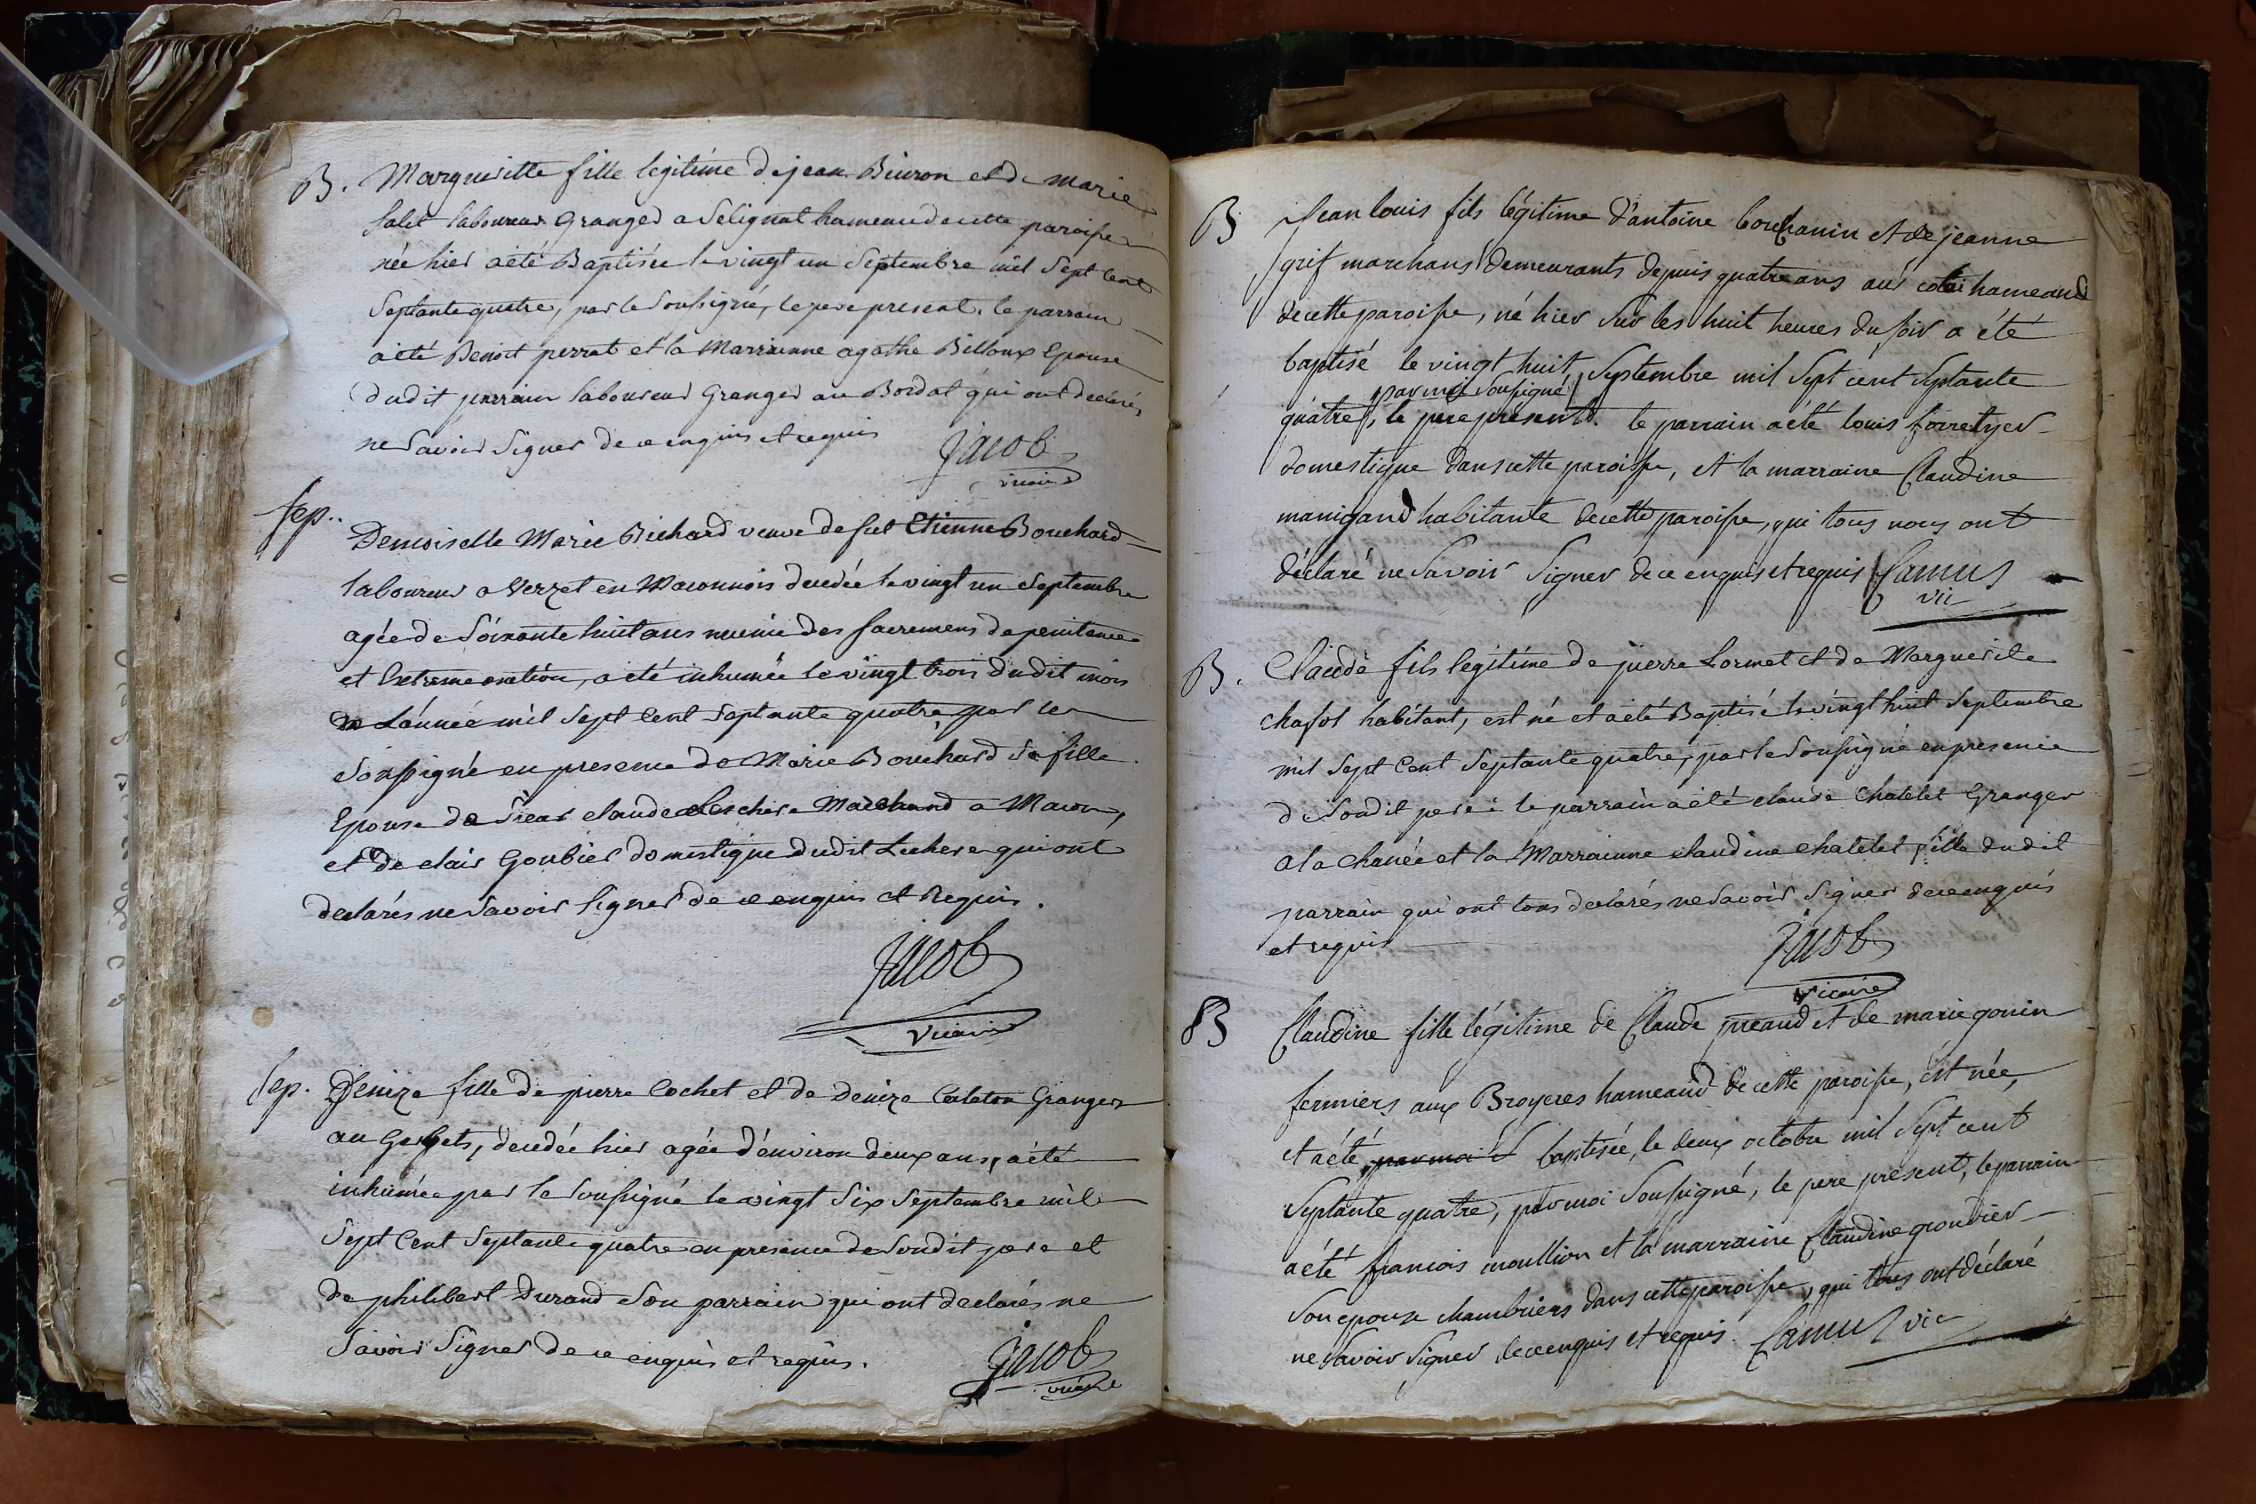 B. Margueritte fille legitime de jean Beuron et de marie
Salet laboureur Granger a Selignat hameau de cette paroisse
née hier a été Baptisée le vingt un Septembre mil Sept Cent
Septante quatre, par le Soussigné, le pere present. le parrain
a été Benoit perrat et la Marrainne agathe Billoux Epouse
dudit parrain laboureur Granger au Bordat qui ont declarés
ne Savoir Signer de ce enquis et requis Jacob
vicaire
sep..
Demoiselle Marie Bichard veuve de fut Etienne Bouchard
laboureur a Verzet en Maconnois decedée le vingt un Septembre
agée de Soixante huit ans munie des Sacremens de penitence
et Extreme onction, a été inhumée le vingt trois dudit mois
L'année mil Sept Cent Septante quatre, par le
Soussigné en presence de Marie Bouchard Sa fille
Epouse de Sieur claude Leschere Marchand a Macon,
et de clair Goubier domestique dudit Lechere qui ont
declarés ne Savoir Signer de ce enquis et Requis.
Jacob
Vicaire
sep. Denize fille de pierre Cochet et de Denize Caleton Grangers
au Gerbets, decedée hier agée d'environ deux ans, a été
inhumée par le Soussigné le vingt Six Septembre mil
Sept Cent Septante quatre en presence de Sondit pere et
de philibert Durand Son parrain qui ont declarés ne
Savoir Signer de ce enquis et requis. Jacob
vicaire
B Jean louis fils légitime d'antoine bouchanin et de jeanne
grif marchans demeurants depuis quatre ans au hameaud
de cette paroisse, né hier Sur les huit heures du soir a été
baptisé le vingt huit Septembre mil Sept cent Septante
par moi Soussigné
quatre, le pere présent. le parrain a été louis
domestique dans cette paroisse, et la marraine Claudine
manigand habitante de cette paroisse, qui tous nous ont
déclaré ne Savoir Signer de ce enquis et requis Camus
vic
B. Claude fils legitime de pierre Lormet et de Marguerite
chassot habitant, est né et a été Baptisé le vingt huit Septembre
mil Sept Cent Septante quatre, par le Soussigné en presence
de Sondit pere: le parrain a été claude Chatelet Granger
a la Chanée et la Marrainne claudine Chatelet fille dudit
parrain qui ont tous declarés ne Savoir Signer de ce enquis
et requis Jacob
vicaire
B Claudine fille légitime de Claude preaud et de marie gonin
fermiers aux Broyeres hameaud de cette paroisse, est née,
et a été par moi baptisée, le deux octobre mil Sept cent
Septante quatre, par moi Soussigné, le pere présent, le parrain
a été francois moullion et la marraine Claudine
Son epouse chambriers dans cette paroisse, qui tous ont déclaré
ne Savoir Signer de ce enquis et requis. Camus vic